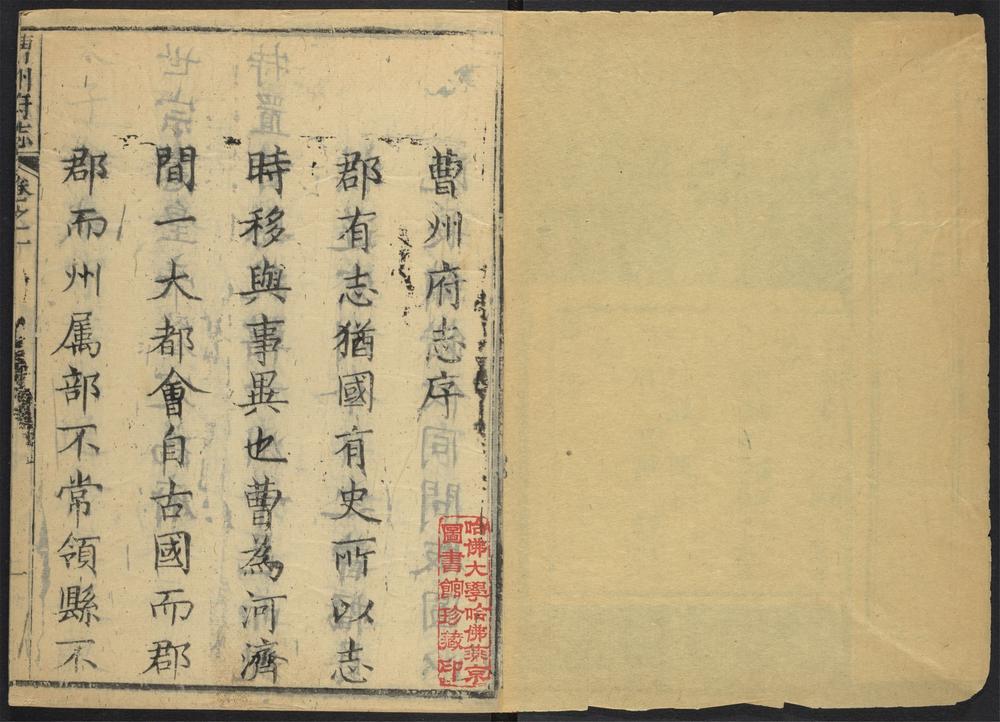 曹州府志序
郡有志猶國有史所以志
時移與事異也曹為河濟
間一大都會自古國而郡
郡而州属部不常領縣不
曹州府志
卷之一
一
哈佛大學哈佛燕京
圖書館珍藏印